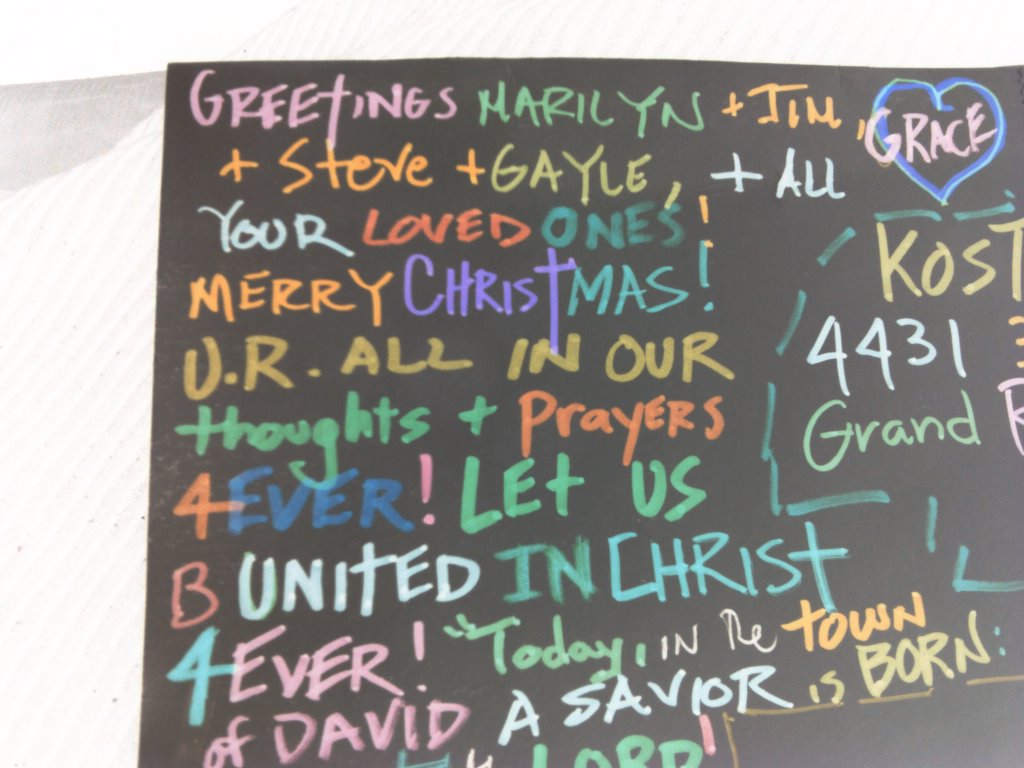 GREETINGS MARILYN + JIM, GRACE
+ Steve + GAYLE, + ALL
YOUR LOVED ONES!
MERRY CHRISTMAS!
U.R. ALL IN OUR
thoughts + PrayERS
4EVER! LEt US
B UNITED IN CHRIST
4EVER! "Today, IN the TOWN
of DAVID A SAVIOR is BORN:
LORD!
KOST
4431
Grand